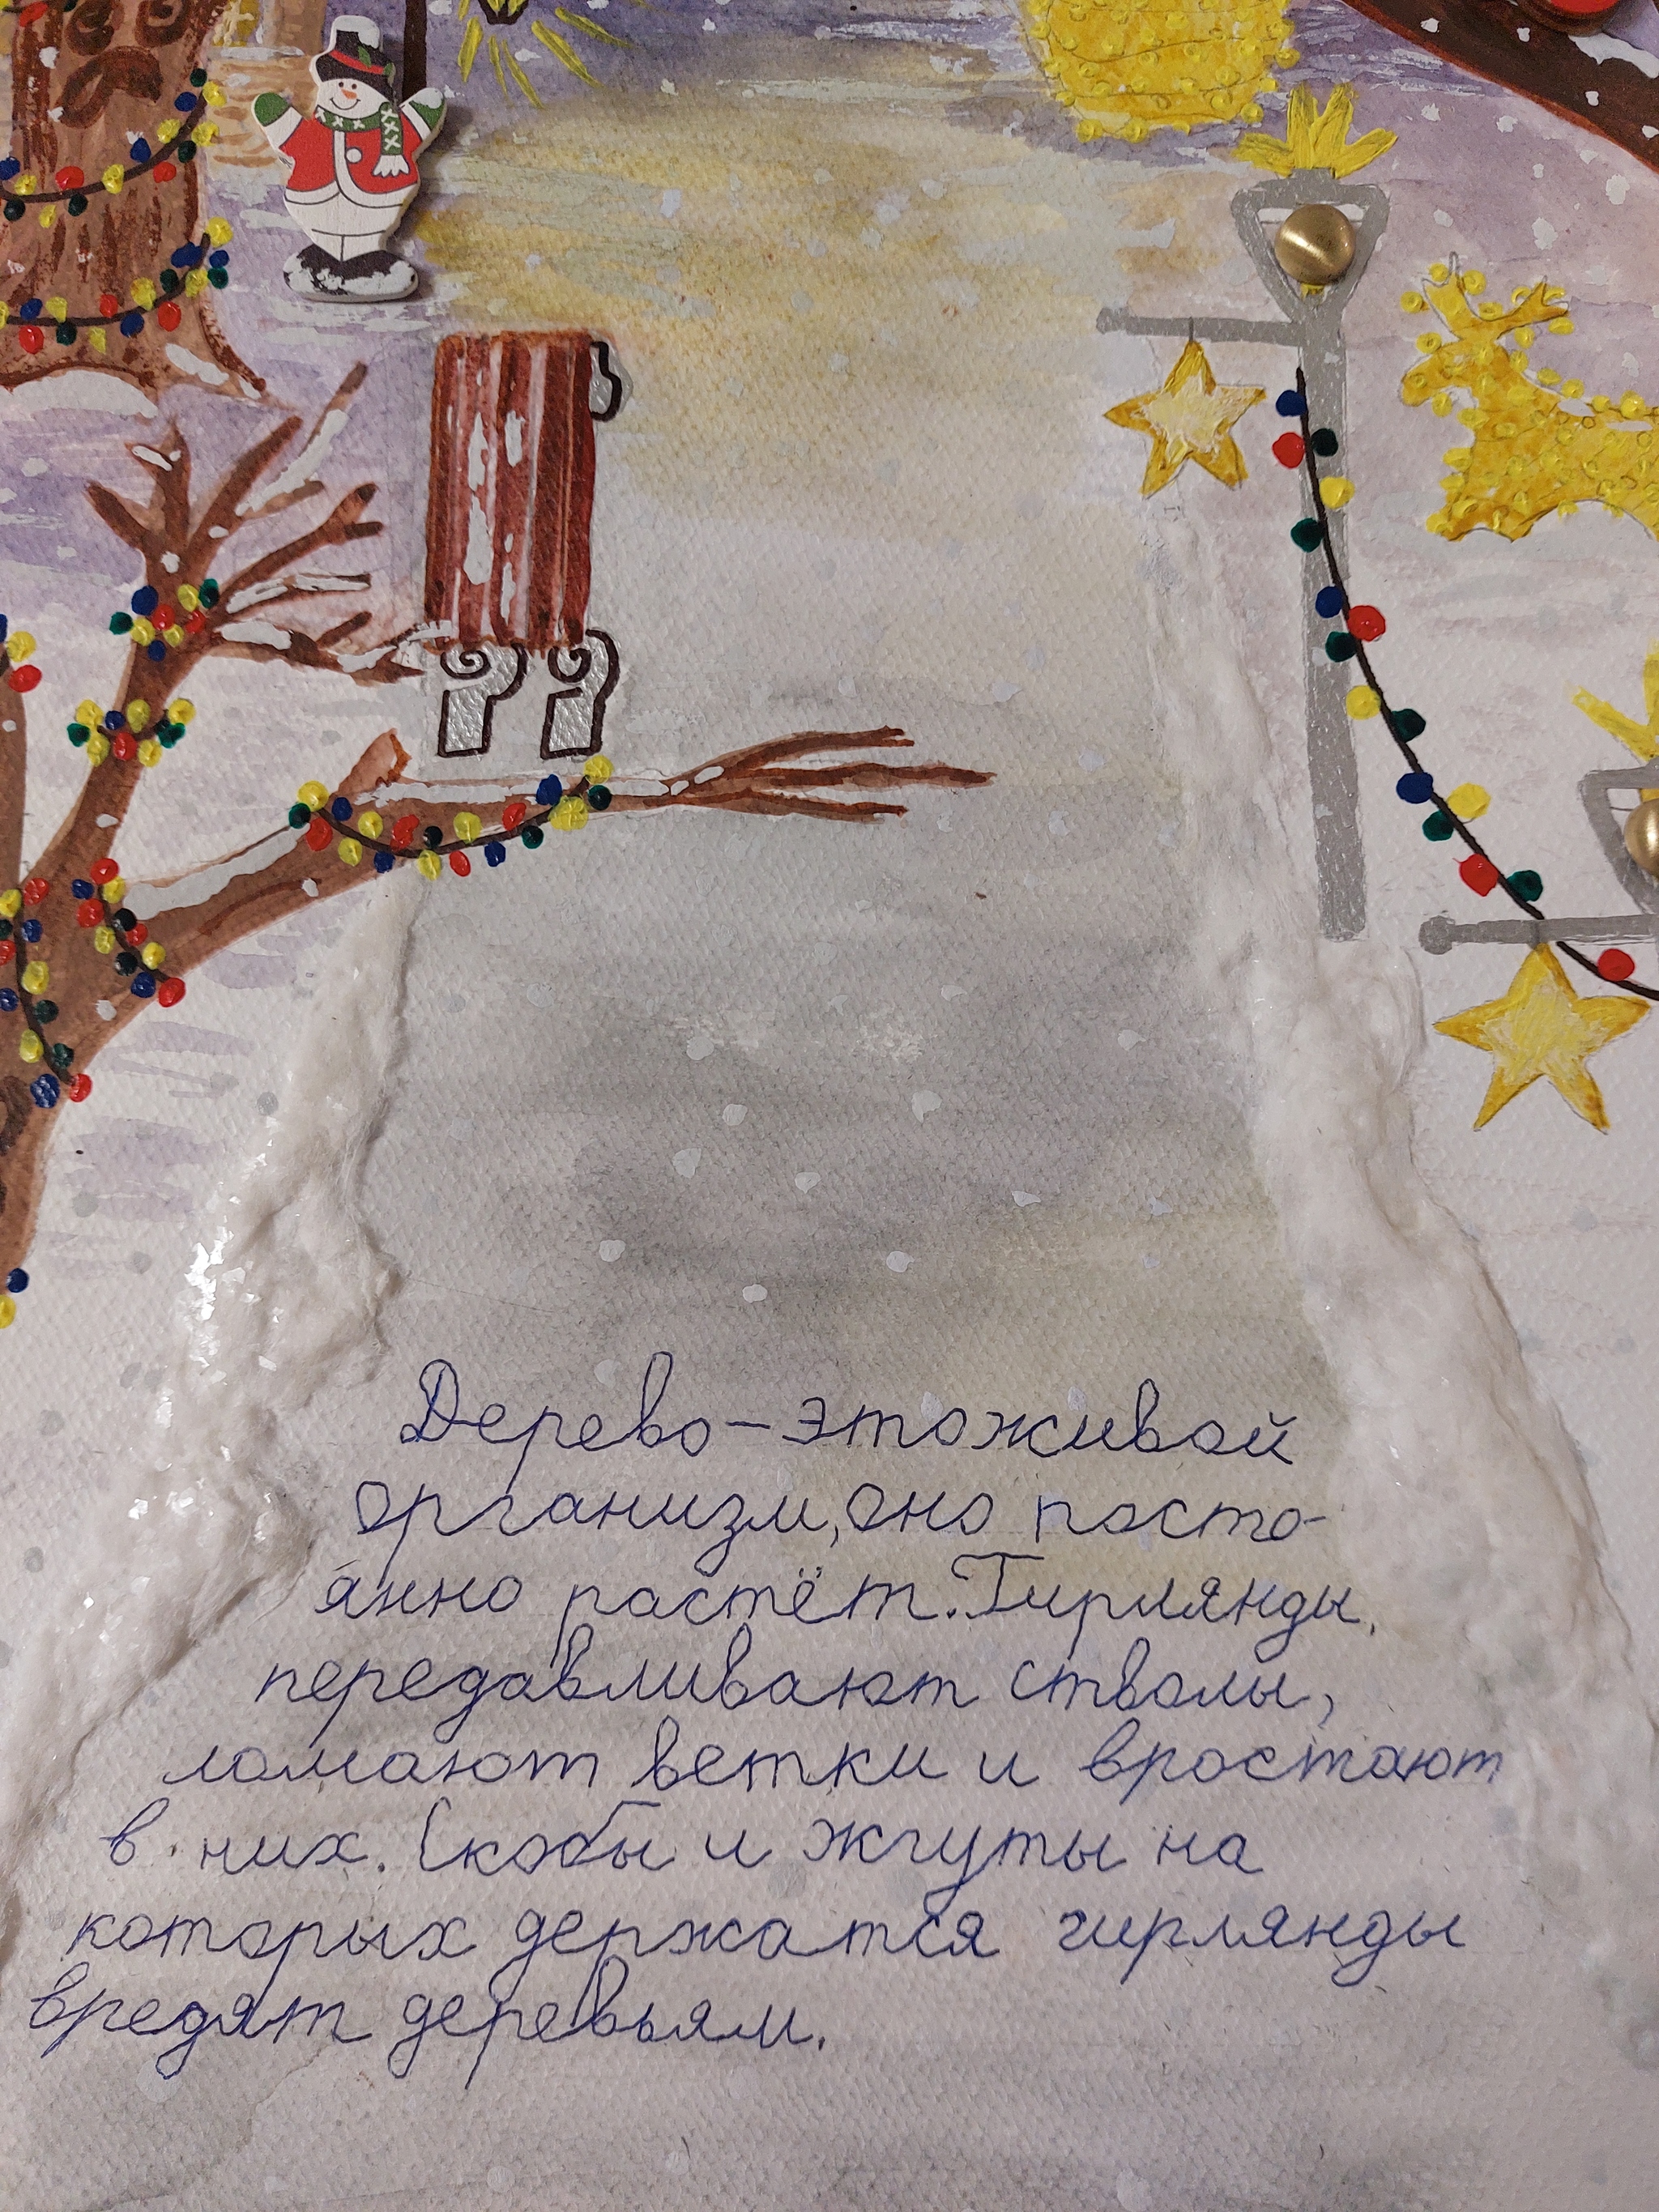 Дерево - это живой
организм, оно посто-
янно растёт. Гирлянды
передавливают стволы,
ломают ветки и вростают
в них. Скобы и жгуты на
которых держатся гирлянды
вредят деревьям.